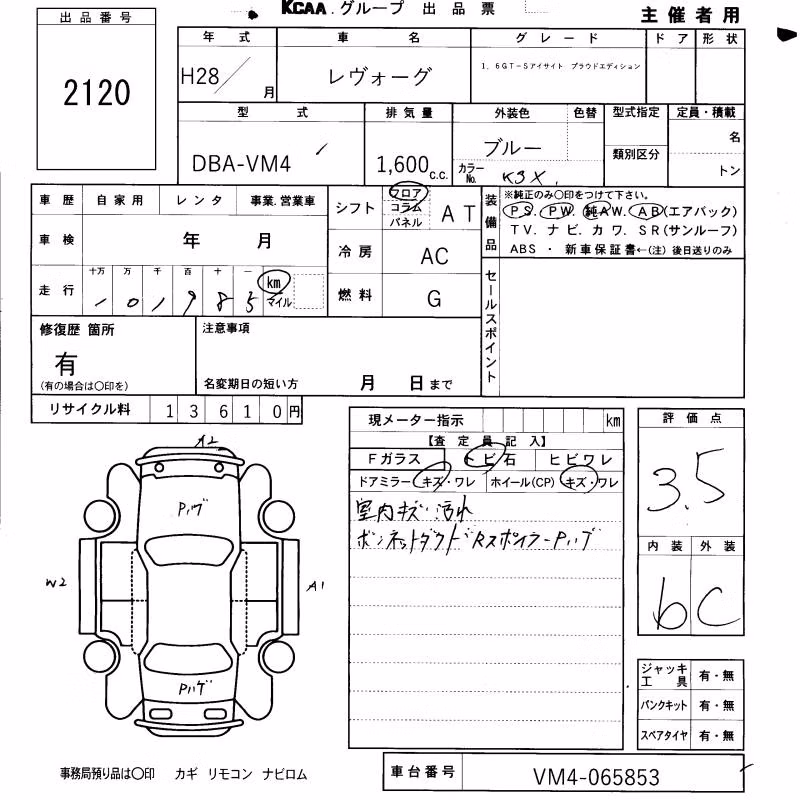 KCAA.グループ 出品票
主催者用
出品番号
2120
年式 車名 グレード ドア 形状
H28 / 月 レヴォーグ 1.6GT-Sアイサイト プラウドエディション
型式 排気量 外装色 色替 型式指定 定員・積載
DBA-VM4 1,600c.c. ブルー 類別区分 名
カラーNo. K3X. トン
車歴 自家用 レンタ 事業.営業車
車検 年 月
走行 十万 万 千 百 十 一 km マイル
101985
シフト フロア コラム パネル AT
冷房 AC
燃料 G
装備品 ※純正のみ〇印をつけて下さい。
PS. PW. 純AW. AB(エアバック)
TV. ナビ. カワ. SR(サンルーフ)
ABS ・ 新車保証書←(注) 後日送りのみ
セールスポイント
修復歴 箇所 注意事項
有
(有の場合は〇印を) 名変期日の短い方 月 日まで
リサイクル料 13610円
現メーター指示 km
【査定員記入】
Fガラス トビ石 ヒビワレ
ドアミラー キズ・ワレ ホイール(CP) キズ・ワレ
室内キズ・汚れ
ボンネットダクト Rスポイラー Pハゲ
評価点
3.5
内装 外装
b C
ジャッキ工具 有・無
パンクキット 有・無
スペアタイヤ 有・無
A2
Pハゲ
W2
A1
Pハゲ
事務局預り品は〇印 カギ リモコン ナビロム
車台番号 VM4-065853